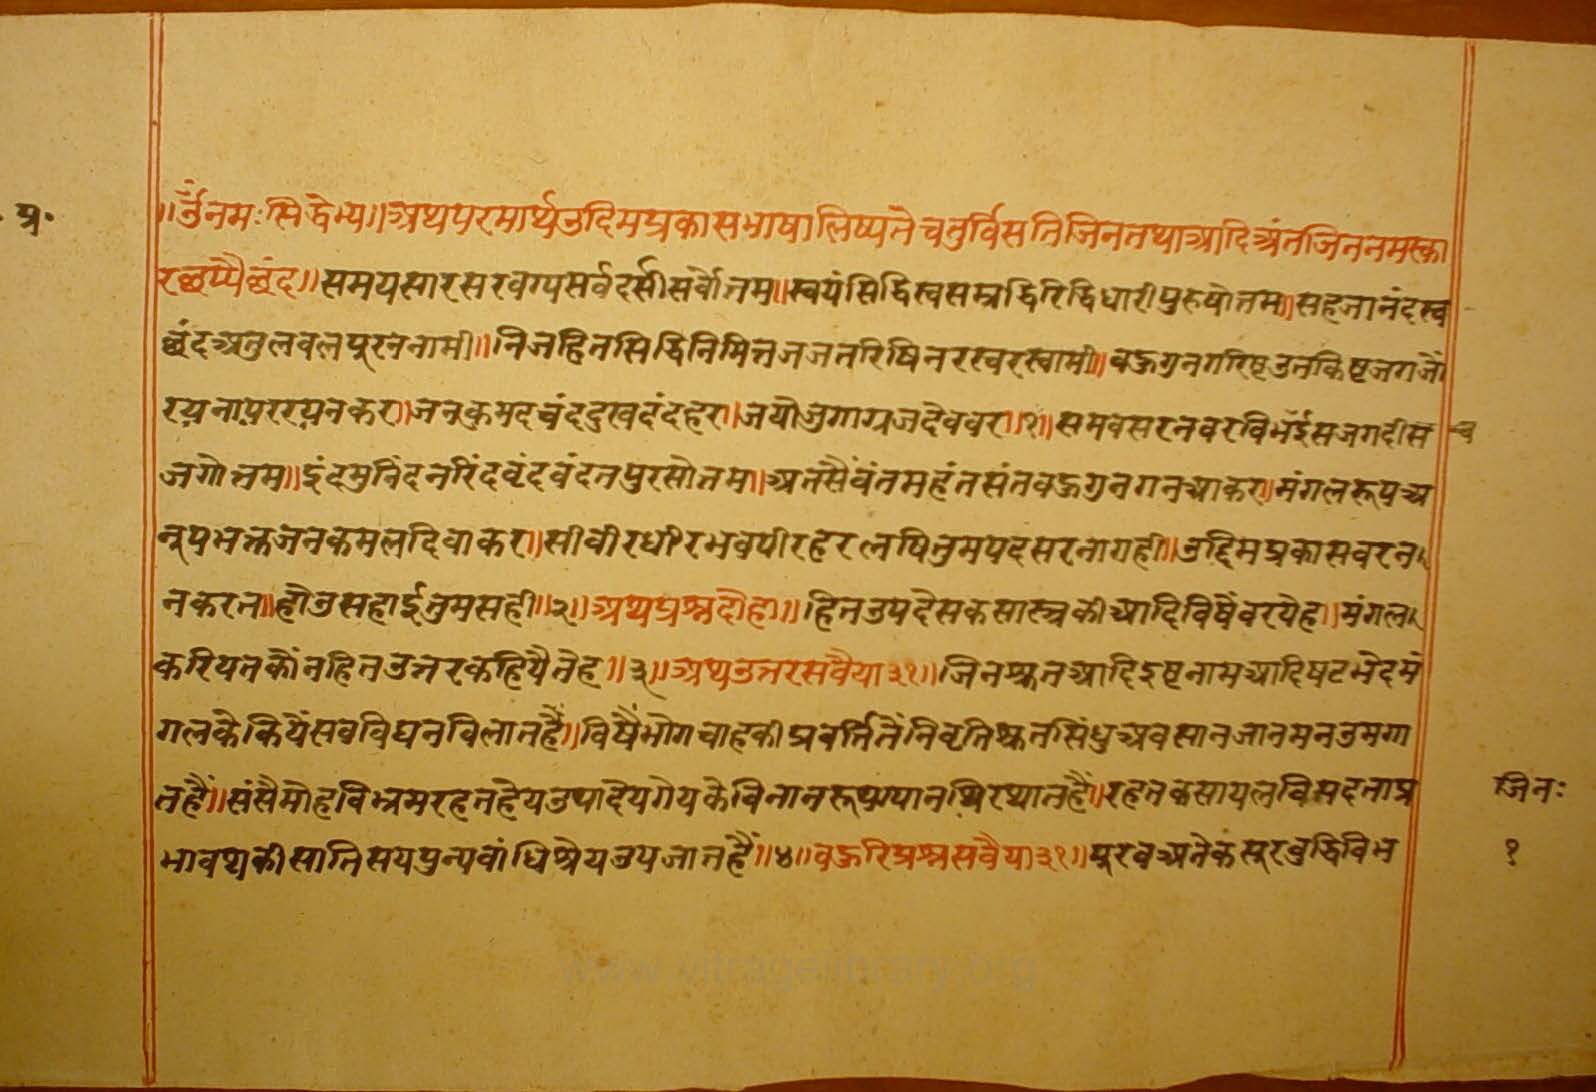 प्र॰
॥ॐ नमः सिद्धेभ्य॥अथपरमार्थउदिमप्रकासभाषालिष्यते चतुर्विसतिजिनतथाआदिअंतजिननमस्का
रछप्पैछंद॥समयसारसरवग्यसर्वदर्सीसर्वोत्तम॥स्वयंसिद्धिस्वसम्रद्धिरिद्धिधारीपुरुषोत्तम॥सहजानंदस्व
छंदअतुलवलपूरननामी॥निजहितसिद्धिनिमित्तजजतरिषिनरस्वरस्वामी॥वऊगुनगरिष्टउतकिष्टजगजौ
जनकुमदचंददुखदंदहरा॥जयोजुगाग्रजदेववरा॥१॥समवसरनवरविभॅईसजगदीस
जगोत्तम॥इंदमुनिंदनरिंदवृंदवंदतपुरसोत्तम॥अतसैवंतमहंतसंतवऊगुनगनआकरा॥मंगलरूपअ
नूपभक्तजनकमलदिवाकरा॥सीवीरधीरभवपीरहरलषितुमपदसरनागही॥उद्दिमप्रकासवरन
नकरन॥होउसहाईतुमसही॥२॥अथप्रश्नदौहा॥हितउपदेसकसास्त्रकीआदिविषैंवरयेह॥मंगल
करियतकौंनहितउत्तरकहियैतेह॥३॥अथउत्तरसवैया३१॥जिनश्रुतआदिइष्टनामआदिषटभेदमं
गलकेकियेंसवविघनविलातहैं॥विषैंभोगचाहकीप्रवर्त्तितेंनिवृतिश्रुतसिंधुअवसानजानमनउमगा
तहैं॥संसैमोहविभ्रमरहतहेयउपादेयगेयकेविनानरूपग्यानथिरथातहैं॥रहतकसायलविसदताप्र
भावथकीसातिसयपुन्यवांधिश्रेयउपजातहैं॥४॥वऊरिप्रश्नसवैया३१॥पूरवअनेकसूरवुद्धिविभ
जिनः
१
www.vitragelibrary.org